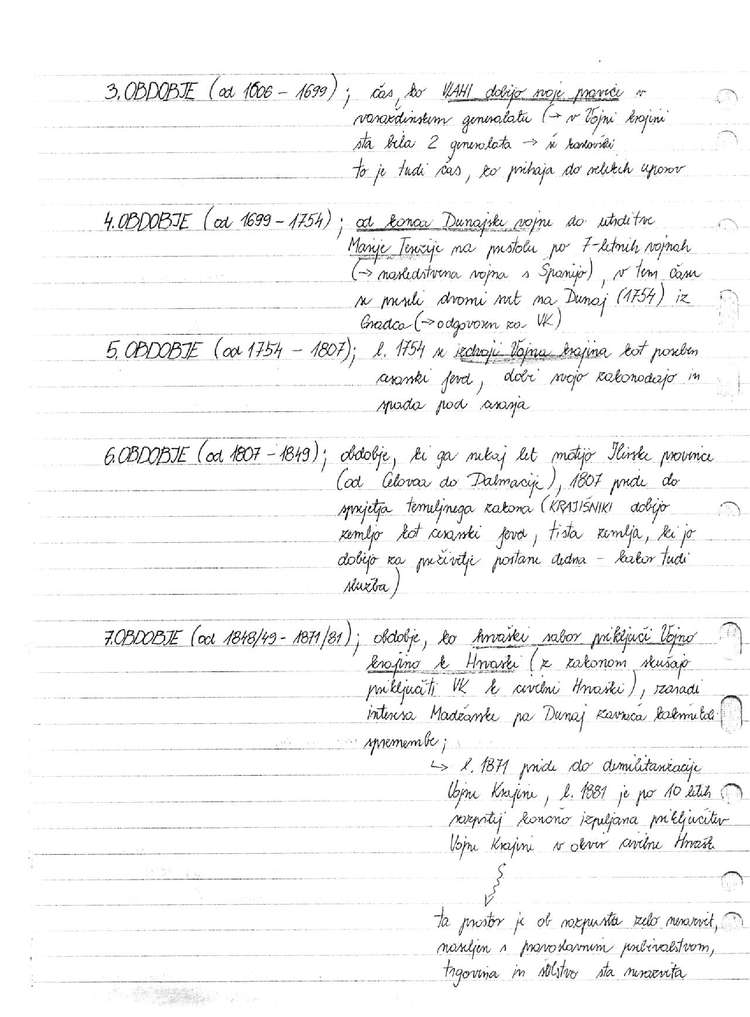 3. OBDOBJE (od 1606 - 1699); čas, ko VLAHI dobijo svoje pravice v
varaždinskem generalatu (→ v Vojni krajini
sta bila 2 generalata → še karlovški
to je tudi čas, ko prihaja do velikih uporov
4. OBDOBJE (od 1699 - 1754); od konca Dunajske vojne do utrditve
Marije Terezije na prestolu po 7-letnih vojnah
(→ nasledstvena vojna s Španijo), v tem času
se preseli dvorni svet na Dunaj (1754) iz
Gradca (→ odgovoren za VK)
5. OBDOBJE (od 1754 - 1807); l. 1754 se izdvoji Vojna krajina kot poseben
cesarski fevd, dobi svojo zakonodajo in
spada pod cesarja
6. OBDOBJE (od 1807 - 1849); obdobje, ki ga nekaj let motijo Ilirske province
(od Celovca do Dalmacije), 1807 pride do
sprejetja temeljnega zakona (KRAJIŠNIKI dobijo
zemljo kot cesarski fevd, tista zemlja, ki jo
dobijo za preživetje postane dedna - kakor tudi
služba)
7. OBDOBJE (od 1848/49 - 1871/81); obdobje, ko hrvaški sabor priključi Vojno
krajino k Hrvaški (z zakonom skušajo
priključiti VK k civilni Hrvaški), zaradi
interesa Madžarske pa Dunaj zavrača kakršnekoli
spremembe;
↳ l. 1871 pride do demilitarizacije
Vojne Krajine, l. 1881 je po 10 letih
razprtij končno izpeljana priključitev
Vojne Krajine v okvir civilne Hrvaške
ta prostor je ob razpustu zelo nerazvit,
naseljen s pravoslavnim prebivalstvom,
trgovina in šolstvo sta nerazvita